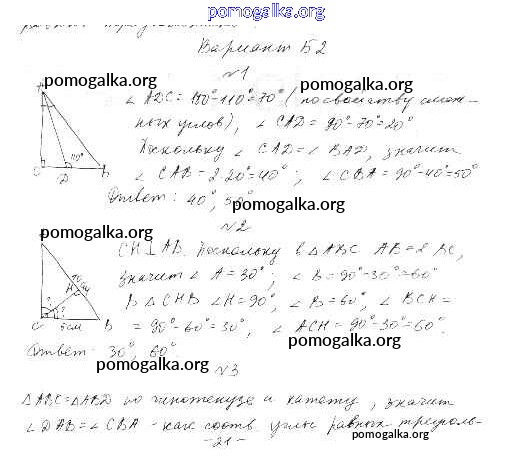 pomogalka.org
Вариант Б2
№1
pomogalka.org pomogalka.org
∠ADC = 180°-110°=70° (по свойству смеж-
ных углов), ∠CAD = 90°-70°=20°
Поскольку ∠CAD = ∠BAD, значит
∠CAB = 2·20°=40°; ∠CBA = 90°-40°=50°
110°
C D B
Ответ: 40°, 50°
pomogalka.org
№2
pomogalka.org pomogalka.org
CH⊥AB. Поскольку в △ABC AB=2BC,
значит ∠A=30°; ∠B=90°-30°=60°
В △CHB ∠H=90°, ∠B=60°, ∠BCH=
= 90°-60°=30°, ∠ACH=90°-30°=60°.
10 см
H
? ?
C 5см B
Ответ: 30°, 60°.
pomogalka.org
pomogalka.org
№3
△ABC=△ABD по гипотенузе и катету, значит
∠DAB=∠CBA - как соотв. углы равных треуголь-
-21-
pomogalka.org